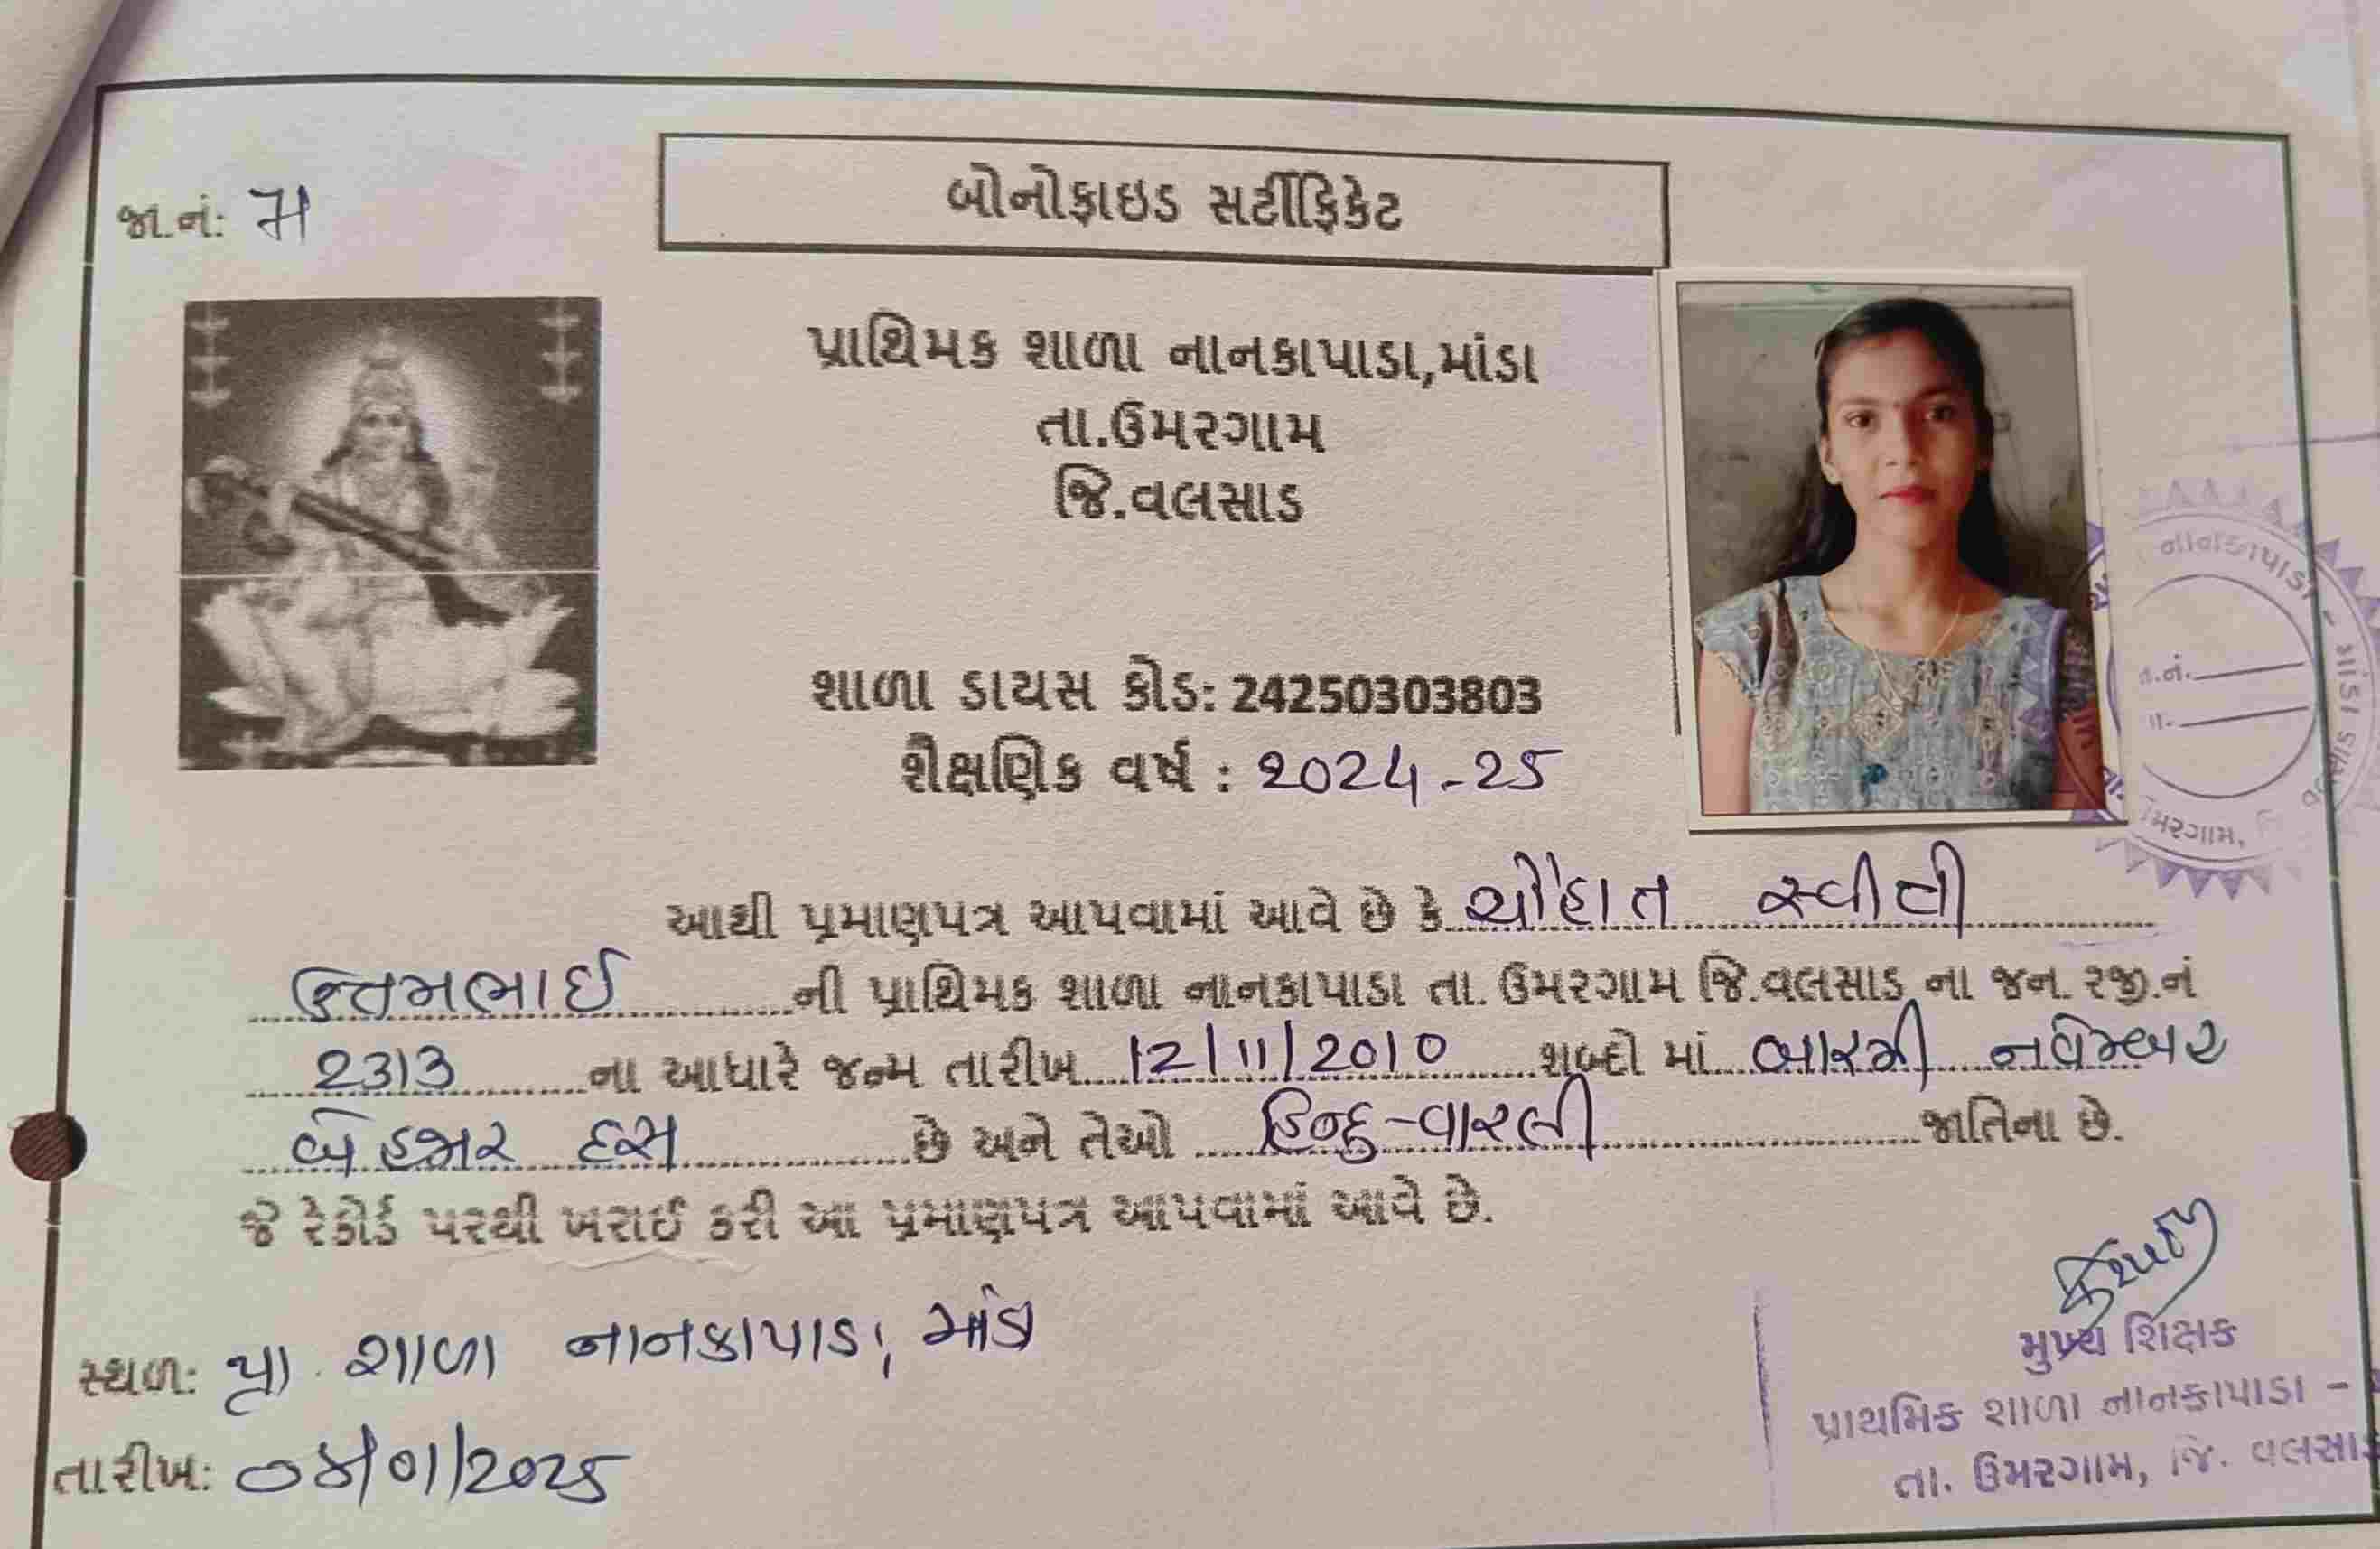 જા.નં: 71
બોનોફાઇડ સર્ટીફિકેટ
પ્રાથમિક શાળા નાનકાપાડા,માંડા
તા.ઉમરગામ
જિ.વલસાડ
શાળા ડાયસ કોડ: 24250303803
શૈક્ષણિક વર્ષ : 2024-25
આથી પ્રમાણપત્ર આપવામાં આવે છે કે ચૌહાન સ્વીટી
ઉત્તમભાઈ ની પ્રાથમિક શાળા નાનકાપાડા તા. ઉમરગામ જિ.વલસાડ ના જન. રજી.નં
2313 ના આધારે જન્મ તારીખ 12/11/2010 શબ્દો માં બારમી નવેમ્બર
બે હજાર દસ છે અને તેઓ હિન્દુ-વારલી જાતિના છે.
જે રેકોર્ડ પરથી ખરાઈ કરી આ પ્રમાણપત્ર આપવામાં આવે છે.
સ્થળ: પ્રા. શાળા નાનકાપાડા, માંડા
તારીખ: 04/01/2025
મુખ્ય શિક્ષક
પ્રાથમિક શાળા નાનકાપાડા -
તા. ઉમરગામ, જિ. વલસાડ
નાનકાપાડા - માંડા